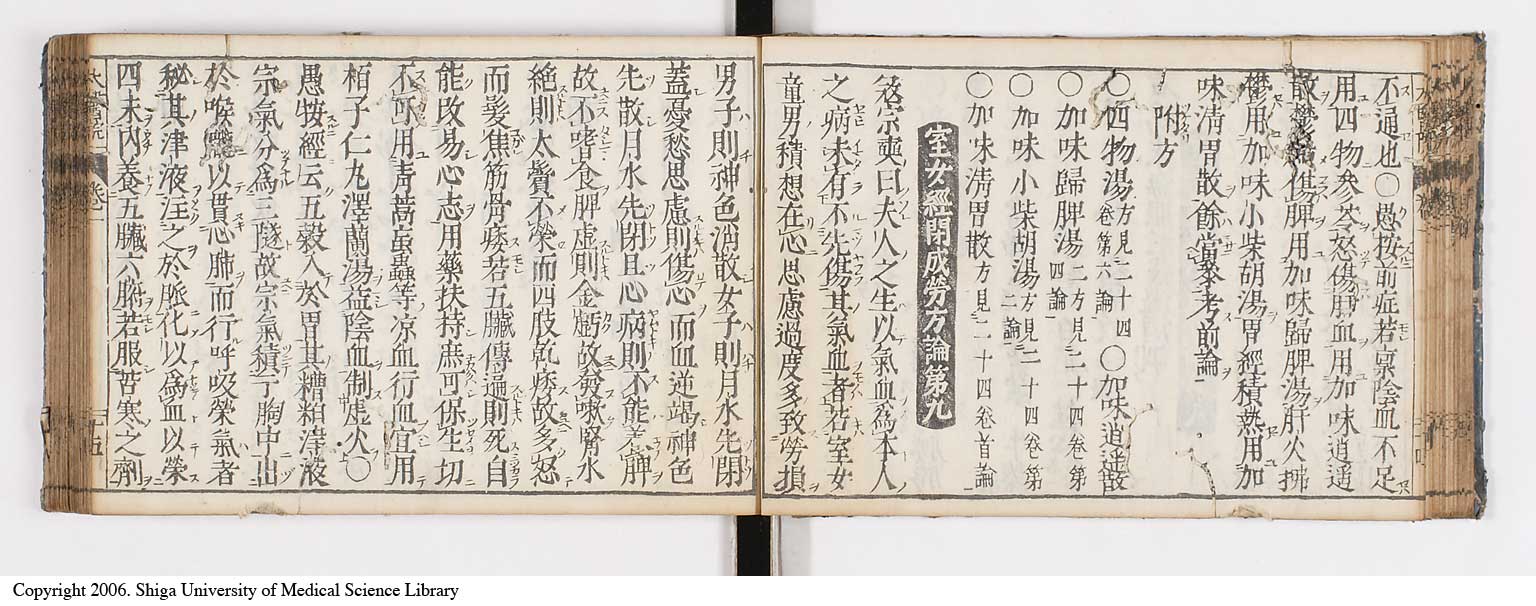 不通也〇愚按前症若衰陰血不足
用四物參苓怒傷肝血用加味逍遥
散鬱傷脾用加味歸脾湯肝火拂
鬱用加味小柴胡湯胃經積熱用加
味淸胃散餘當參考前論
附方
〇四物湯方見二十四卷第六論〇加味逍遥散
〇加味歸脾湯二方見二十四卷第四論
〇加味小柴胡湯方見二十四卷第二論
〇加味淸胃散方見二十四卷首論
室女經閉成勞方論第九
寇宗奭曰夫人之生以氣血為本人
之病未有不先傷其氣血者若室女
童男積想在心思慮過度多致勞損
男子則神色消散女子則月水先閉
蓋憂愁思慮則傷心而血逆竭神色
先散月水先閉且心病則不能養脾
故不嗜食脾虛則金虧故發嗽腎水
絶則木氣不榮而四肢乾痿故多怒
而髮焦筋骨痿若五臓傳遍則死自
能改易心志用藥扶持庶可保生切
不可用靑蒿䖟蟲等凉血行血宜用
栢子仁丸澤蘭湯益陰血制虚火〇
愚按經云五穀入於胃其糟粕津液
宗氣分為三隧故宗氣積于胸中出
於喉嚨以貫心肺而行呼吸榮氣者
秘其津液注之於脈化以為血以榮
四末内養五臓六腑若服苦寒之劑
Copyright 2006. Shiga University of Medical Science Library